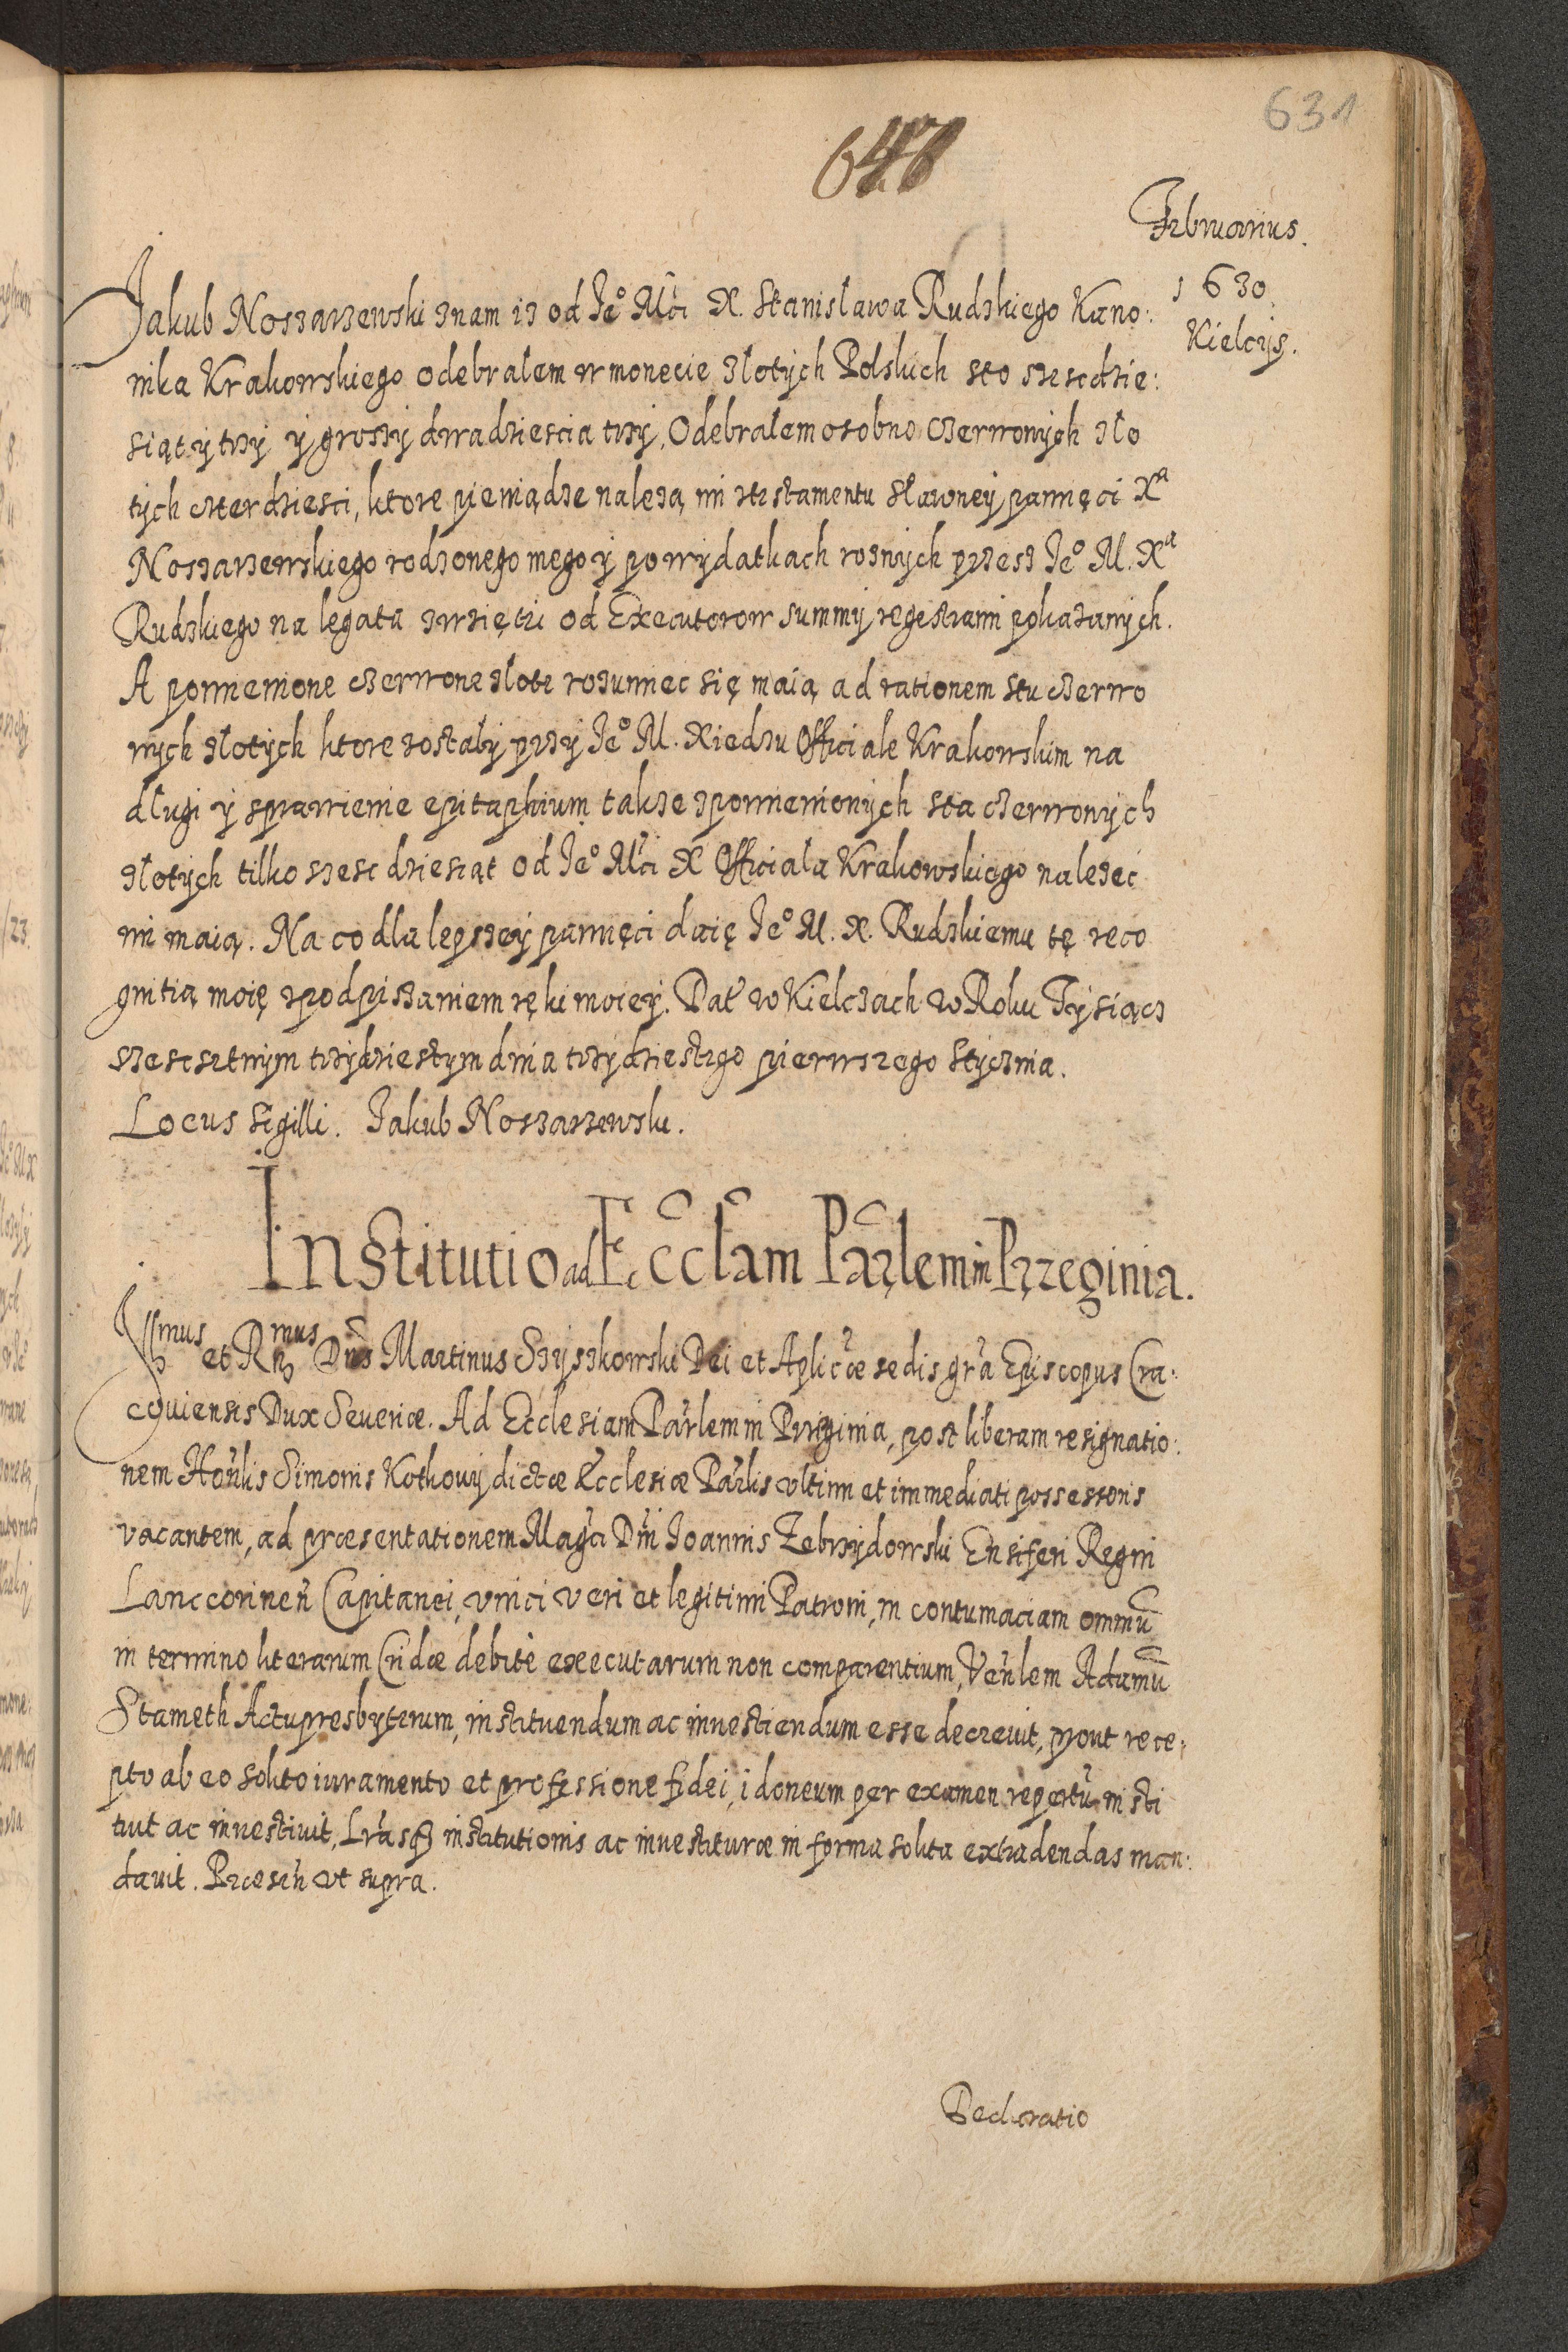 631
Februarius.
1630.
Kielcijs.
Jakub Noszarzewski znam iz od Je° Mći X. Stanisława Rudzkiego Kano:
nika Krakowskiego odebrałem w monecie złotych Polskich sto szescdzie:
siąt ÿ trzÿ ÿ groszÿ dwadziescia trzÿ, Odebrałem osobno czerwonÿch zło
tÿch czterdziesci, ktore pieniądze nalezą mi z testamentu sławneÿ pamięci Xª
Noszarzewskiego rodzonego mego ÿ po wÿdatkach roznÿch przesz Je° M. Xª
Rudzkiego na legata zwziętei od Executorow summÿ regestrami pokazanÿch.
A pomienione czerwone złote rozumiec się maią ad rationem stu czerwo
nÿch złotÿch ktore zostałÿ przÿ Je° M. Xiedzu Officiale Krakowskim na
długi ÿ sprawienie epitaphium takze z pomienionÿch sta czerwonÿch
złotÿch tilko szescdziesiąt od Je° Mći X Officiała Krakowskiego nalezeć
mi maią. Na co dla lepszeÿ pamięci daię Je° M. X. Rudzkiemu tę reco
gnitią moię z podpiszaniem ręki moieÿ. Dat w Kielczach w Roku Tÿsiącz
szescsetnÿm trzÿdziestÿm dnia trzÿdziestego pierwszego Stÿcznia.
Locus Sigilli. Jakub Noszarzewski.
Institutio ad Ecclam Parlem in Przeginia.
Illmus et Rndmus Dns Martinus Szÿszkowski Dei et Aplicæ sedis gra Episcopus Cra:
couiensis Dux Seueriæ. Ad Ecclesiam Parlem in Prziginia, post liberam resignatio:
nem Honlis Simonis Kotkowÿ dictæ Ecclesiæ Parlis vltimi et immediati possessoris
vacantem, ad præsentationem Magci Dni Joannis Zebrzÿdowski Ensiferi Regni
Lanccorinen Capitanei, vnici veri et legitimi Patroni, in contumaciam omniu
in termino literarum Cridæ debitè executarum non comparentium, Venlem Adamu
Stameth Actupresbyterum, instituendum ac inuestiendum esse decreuit, prout rece:
pto ab eo solito iuramento et professione fidei, idoneum per examen repertu insti
tuit ac inuestiuit, Lrasq institutionis ac inuestituræ in forma solita extradendas man:
dauit. Præsen vt supra.
Declaratio